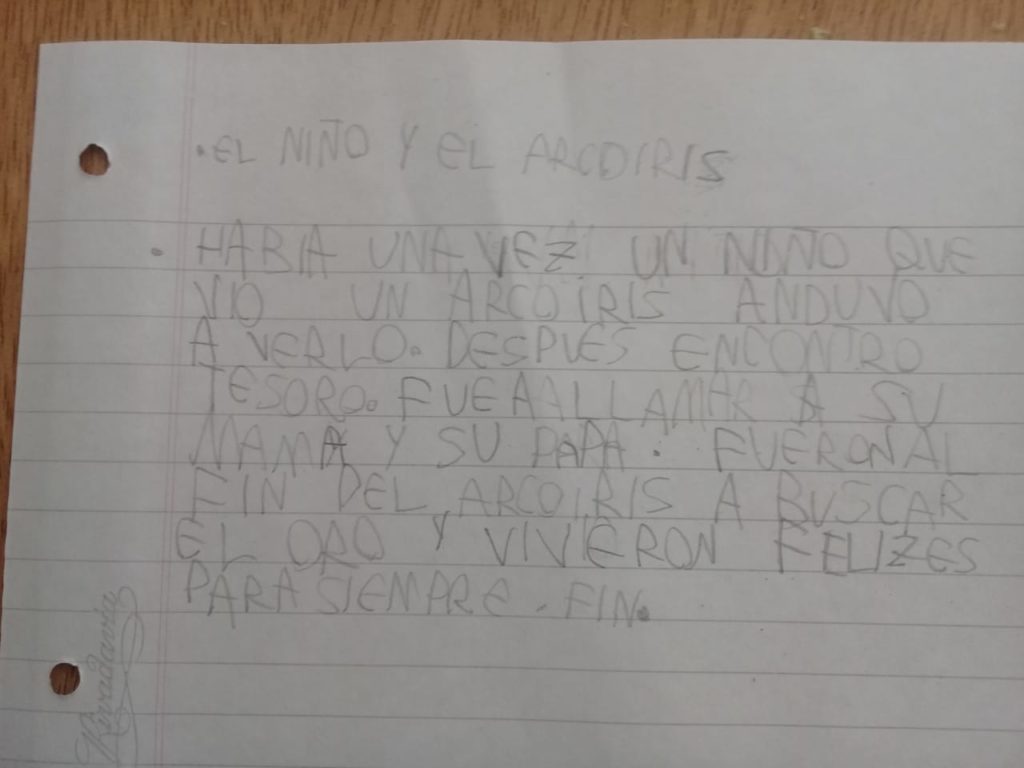 .EL NIÑO Y EL ARCOIRIS
. HABIA UNA VEZ UN NIÑO QUE
VIO UN ARCOIRIS ANDUVO
A VERLO. DESPUES ENCONTRO
TESORO. FUE A ALLAMAR A SU
MAMÁ Y SU PAPA. FUERON AL
FIN DEL ARCOIRIS A BUSCAR
EL ORO Y VIVIERON FELIZES
PARA SIEMPRE. FIN.
Rivadavia